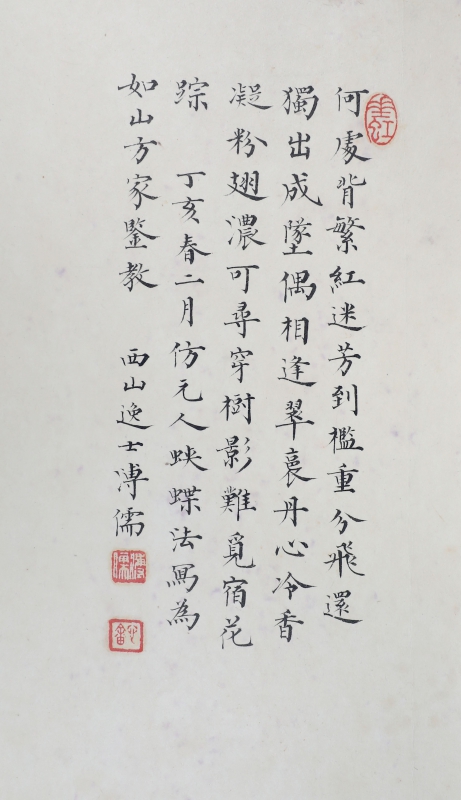 何處背繁紅迷芳到檻重分飛還
獨出成墜偶相逢翠裛丹心冷香
凝粉翅濃可尋穿樹影難覓宿花
踪 丁亥春二月仿元人蛺蝶法寫為
如山方家鑒教 西山逸士溥儒
溥儒
心畬